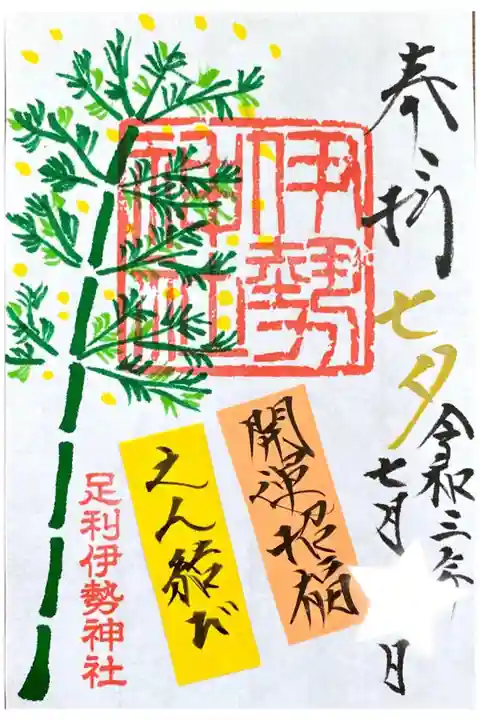 奉拝
七夕
令和三年
七月 日
伊勢
神社
開運招福
えん結び
足利伊勢神社